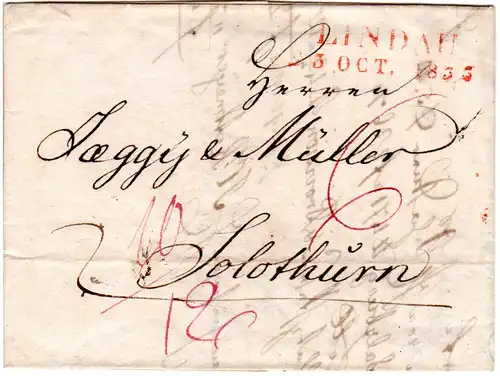 LINDAU
3 OCT. 1835
Herren
Jæggÿ & Müller
Solothurn
10
6
12